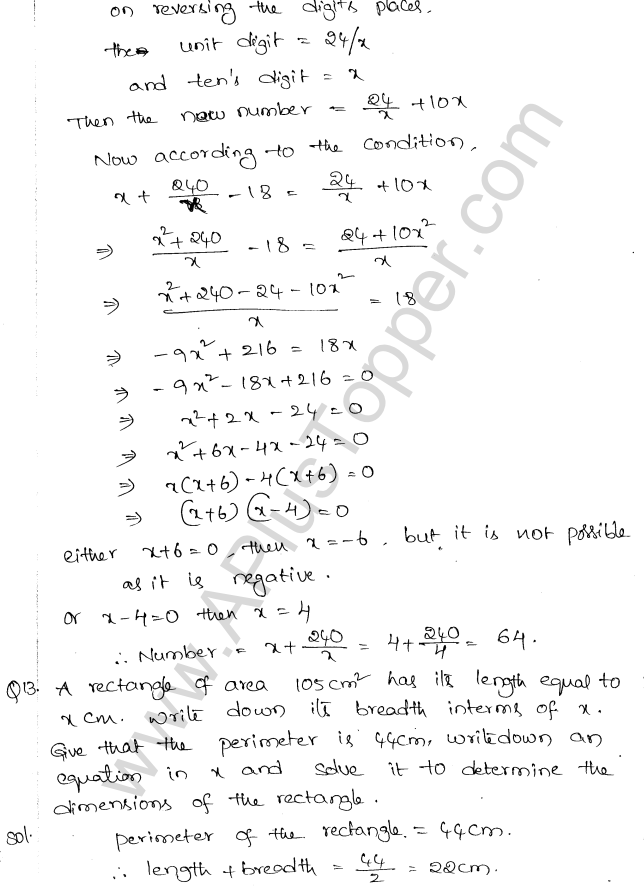 on reversing the digits places.
the unit digit = 24/x
and ten's digit = x
Then the new number = 24/x + 10x
Now according to the condition,
x + 240/x - 18 = 24/x + 10x
⇒ (x² + 240)/x - 18 = (24 + 10x²)/x
⇒ (x² + 240 - 24 - 10x²)/x = 18
⇒ -9x² + 216 = 18x
⇒ -9x² - 18x + 216 = 0
⇒ x² + 2x - 24 = 0
⇒ x² + 6x - 4x - 24 = 0
⇒ x(x+6) - 4(x+6) = 0
⇒ (x+6) (x-4) = 0
either x+6 = 0, then x = -6, but it is not possible
as it is negative.
or x-4=0 then x = 4
∴ Number = x + 240/x = 4 + 240/4 = 64.
Q13. A rectangle of area 105cm² has its length equal to
x cm. write down its breadth interms of x.
Give that the perimeter is 44cm, writedown an
equation in x and solve it to determine the
dimensions of the rectangle.
Sol. perimeter of the rectangle. = 44cm.
∴ length + breadth = 44/2 = 22cm.
www.APlusTopper.com